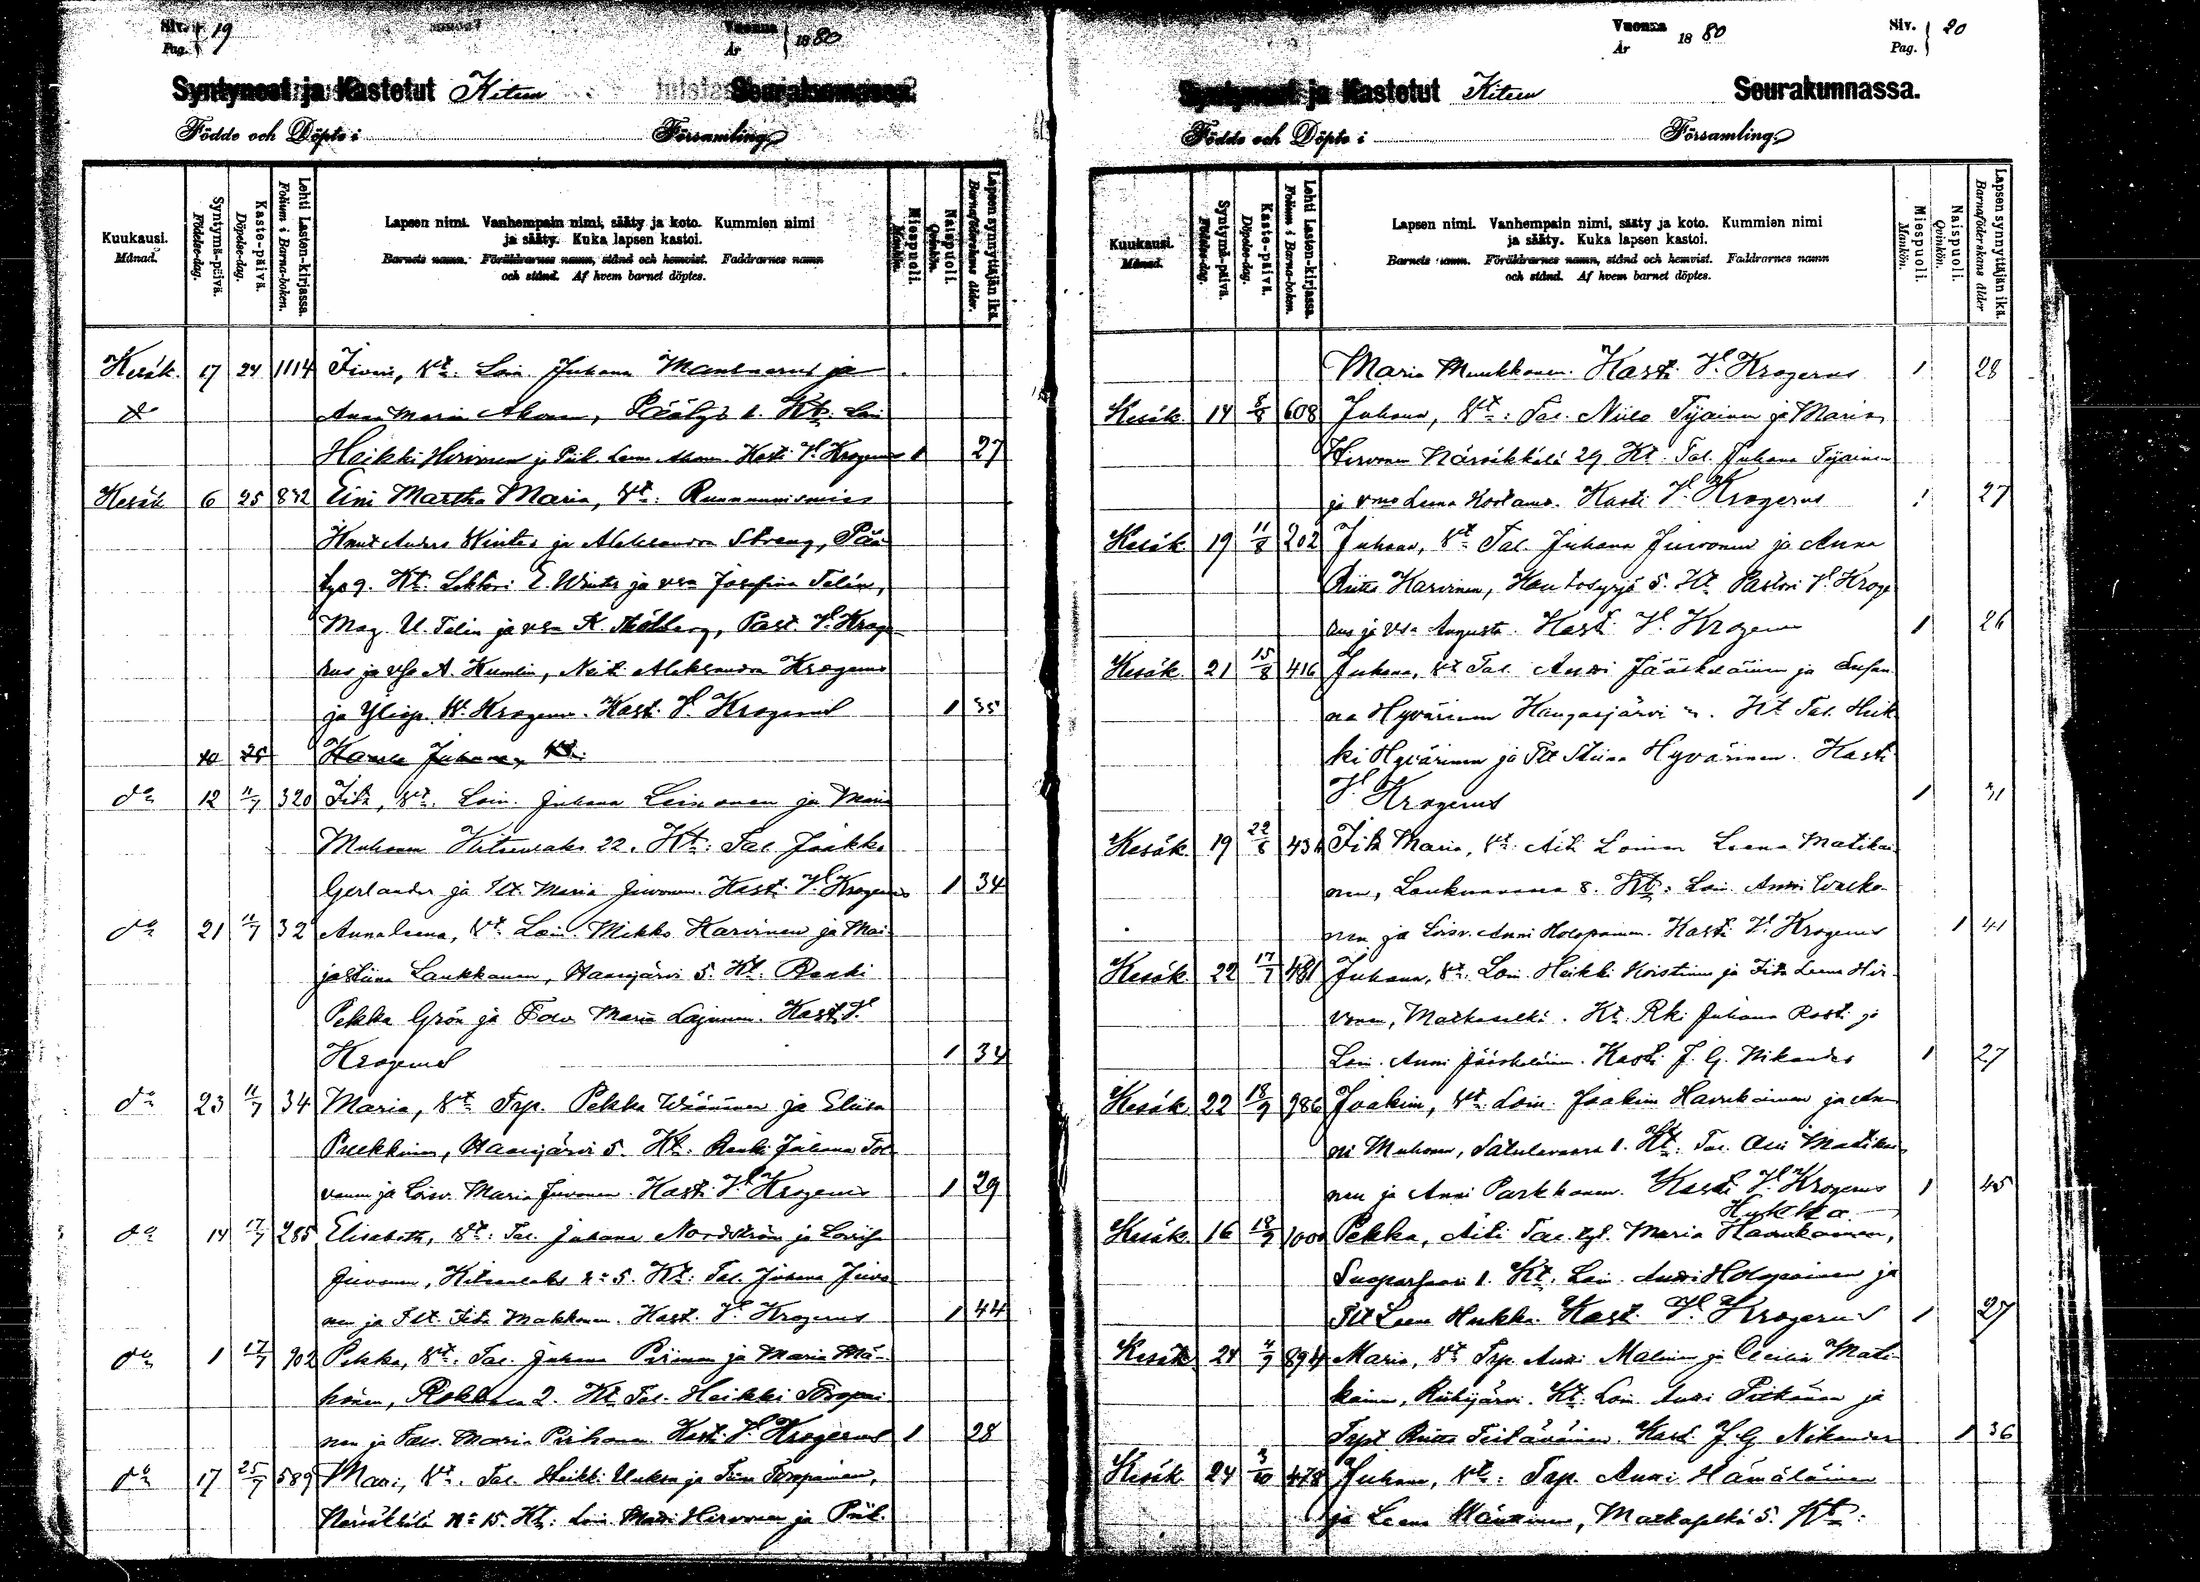 Siv. 19
Pag.
Vuonna 1880
År
Syntyneet ja Kastetut Kiteen Seurakunnassa.
Födde och Döpte i Församling
Kuukausi. Månad.
Syntymä-päivä. Födelse-dag.
Kaste-päivä. Döpelse-dag.
Lehti Lasten-kirjassa. Folium i Barna-boken.
Lapsen nimi. Vanhempain nimi, sääty ja koto. Kummien nimi
ja sääty. Kuka lapsen kastoi.
Barnets namn. Föräldrarnes namn, stånd och hemvist. Faddrarnes namn
och stånd. Af hvem barnet döptes.
Miespuoli. Mankön.
Naispuoli. Qvinkön.
Lapsen synnyttäjän ikä. Barnaföderskans ålder.
Kesäk. 17 24 1114 Iivari, Vt. Lois. Juhana ja
Anna Maria Akonen, Rääkyl 1. Kt. Loi
Heikki Hirvonen ja Piik. Leena Akonen. Kast. V. Krogerus 1 27
Kesäk 6 25 832 Eini Martha Maria, Vt:
Knut Anders Winter ja Aleksandra Streng, Pää-
9. Kt. Lehtori E. Winter ja vsa Josefina Telén,
Mag. U. Telén ja vsa K. Past. V. Kroge-
rus ja vsa A. Humlin, Neit. Aleksandra Krogerus
ja Yliop. W. Krogerus. Kast. V. Krogerus 1 35
25 Juhana, Vt.
do 12 11/7 320 Iida, Vt. Lois. Juhana Leinonen ja Maria
Muhonen Kiteenlaks 22. Kt: Tal. Jaakko
Gerlander ja Tlt. Maria Juvonen. Kast. V. Krogerus 1 34
do 21 11/7 32 Anna Leena, Vt. Lois. Mikko Karvinen ja Mai-
ja Stiina Laukkanen, Haarajärvi 5. Kt. Renki
Pekka Grön ja Maria Lajunen. Kast. V.
Krogerus 1 34
do 23 11/7 34 Maria, Vt. Trp. Pekka Wäänänen ja Eliisa
Puukkinen, Haarajärvi 5. Kt. Renki Juhana Tol-
vanen ja Loisv. Maria Juvonen. Kast. V. Krogerus 1 29
do 14 17/7 285 Elisabeth, Vt: Tal. Juhana Nordström ja Lovisa
Juvonen, Kiteenlaks No 5. Kt: Tal. Juhana Juvo-
nen ja Tlt. Iida Makkonen. Kast. V. Krogerus 1 44
do 1 17/7 902 Pekka, Vt. Tal. Juhana Piironen ja Maria Mä-
könen, 2. Kt Tal. Heikki Toropai-
nen ja Maria Pirhonen Kast. V. Krogerus 1 28
do 17 25/7 589 Mari, Vt. Tal. Heikki ja Toropainen,
Närsäkkälä No 15. Kt: Lois. Matti Hirvonen ja Piik.
Vuonna 1880
År
Siv. 20
Pag.
Syntyneet ja Kastetut Kiteen Seurakunnassa.
Födde och Döpte i Församling
Kuukausi. Månad.
Syntymä-päivä. Födelse-dag.
Kaste-päivä. Döpelse-dag.
Lehti Lasten-kirjassa. Folium i Barna-boken.
Lapsen nimi. Vanhempain nimi, sääty ja koto. Kummien nimi
ja sääty. Kuka lapsen kastoi.
Barnets namn. Föräldrarnes namn, stånd och hemvist. Faddrarnes namn
och stånd. Af hvem barnet döptes.
Miespuoli. Mankön.
Naispuoli. Qvinkön.
Lapsen synnyttäjän ikä. Barnaföderskans ålder
Maria Muukkonen. Kasti V. Krogerus 1 28
Kesäk. 14 8/8 608 Juhana, Vt: Tal. Niilo Tyjäinen ja Maria
Hirvonen Närsäkkälä 29 Kt. Tal. Juhana Tyjäinen
ja vmo Leena Kostamo. Kasti V. Krogerus 1 27
Kesäk 19 11/8 202 Juhana, Vt. Tal. Juhana Juvonen ja Anna
Riitta Karvinen, Hautosyrjä 5. Kt. Pastori V. Kroge-
rus ja vsa Augusta. Kasti V. Krogerus 1 26
Kesäk. 21 15/8 416 Juhana, Vt Tal. Antti Jääskeläinen ja Susan-
na Hyvärinen Kangasjärvi Kt Tal. Heik-
ki Hyvärinen ja Tlt Stiina Hyvärinen. Kasti
V. Krogerus 1 31
Kesäk. 19 22/8 434 Iida Maria, Vt. Äiti Loinen Leena Matikai-
nen, Loukunvaara 8. Kt: Lois. Antti Walko-
nen ja Loisv. Anni Holopainen. Kasti V. Krogerus 1 41
Kesäk. 22 17/7 481 Juhana, Vt: Lois. Heikki Koistinen ja Iida Leena Hir-
vonen, Matkaselkä. Kt. Rki Juhana Rosti ja
Lois. Anni Jääskeläinen. Kasti J. G. Nikander 1 27
Kesäk. 22 18/9 986 Joakim, Vt. Lois. Joakim Havukainen ja An-
ni Muhonen, Satulavaara 1. Kt: Tal. Matikai-
nen ja Anni Parkkonen. Kasti V. Krogerus 1 45
Hukka
Kesäk. 16 18/9 1000 Pekka, Äiti Tal. tyt. Maria Havukainen,
Suoparsaari 1. Kt. Lois. Antti Holopainen ja
Tlt Leena Hukka. Kast. V. Krogerus 1 27
Kesäk 24 4/9 894 Maria, Vt Trp. Antti Malinen ja Cecilia Mati-
kainen, Riihijärvi. Kt. Lois. Antti Pitkänen ja
Trpt Riitta Teiläväinen. Kast. J. G. Nikander 1 36
Kesäk 24 3/10 478 Juhana, Vt: Trp. Antti Hämäläinen
ja Leena Mäntsinen, Matkaselkä 5. Kt: